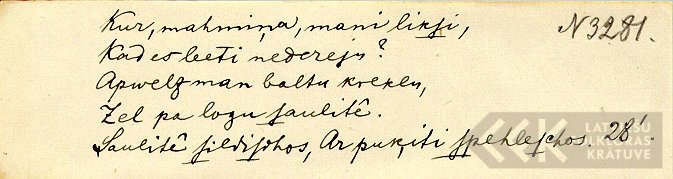 Kur, mahmiņa, mani liksi, N 3281.
Kad es leeti nedereju?
Apwelz man baltu kreklu,
Zel pa logu saulitê.
Saulitê sildischos, Ar puķiti spehleschos. 28'.
LATVIEŠU FOLKLORAS KRĀTUVE